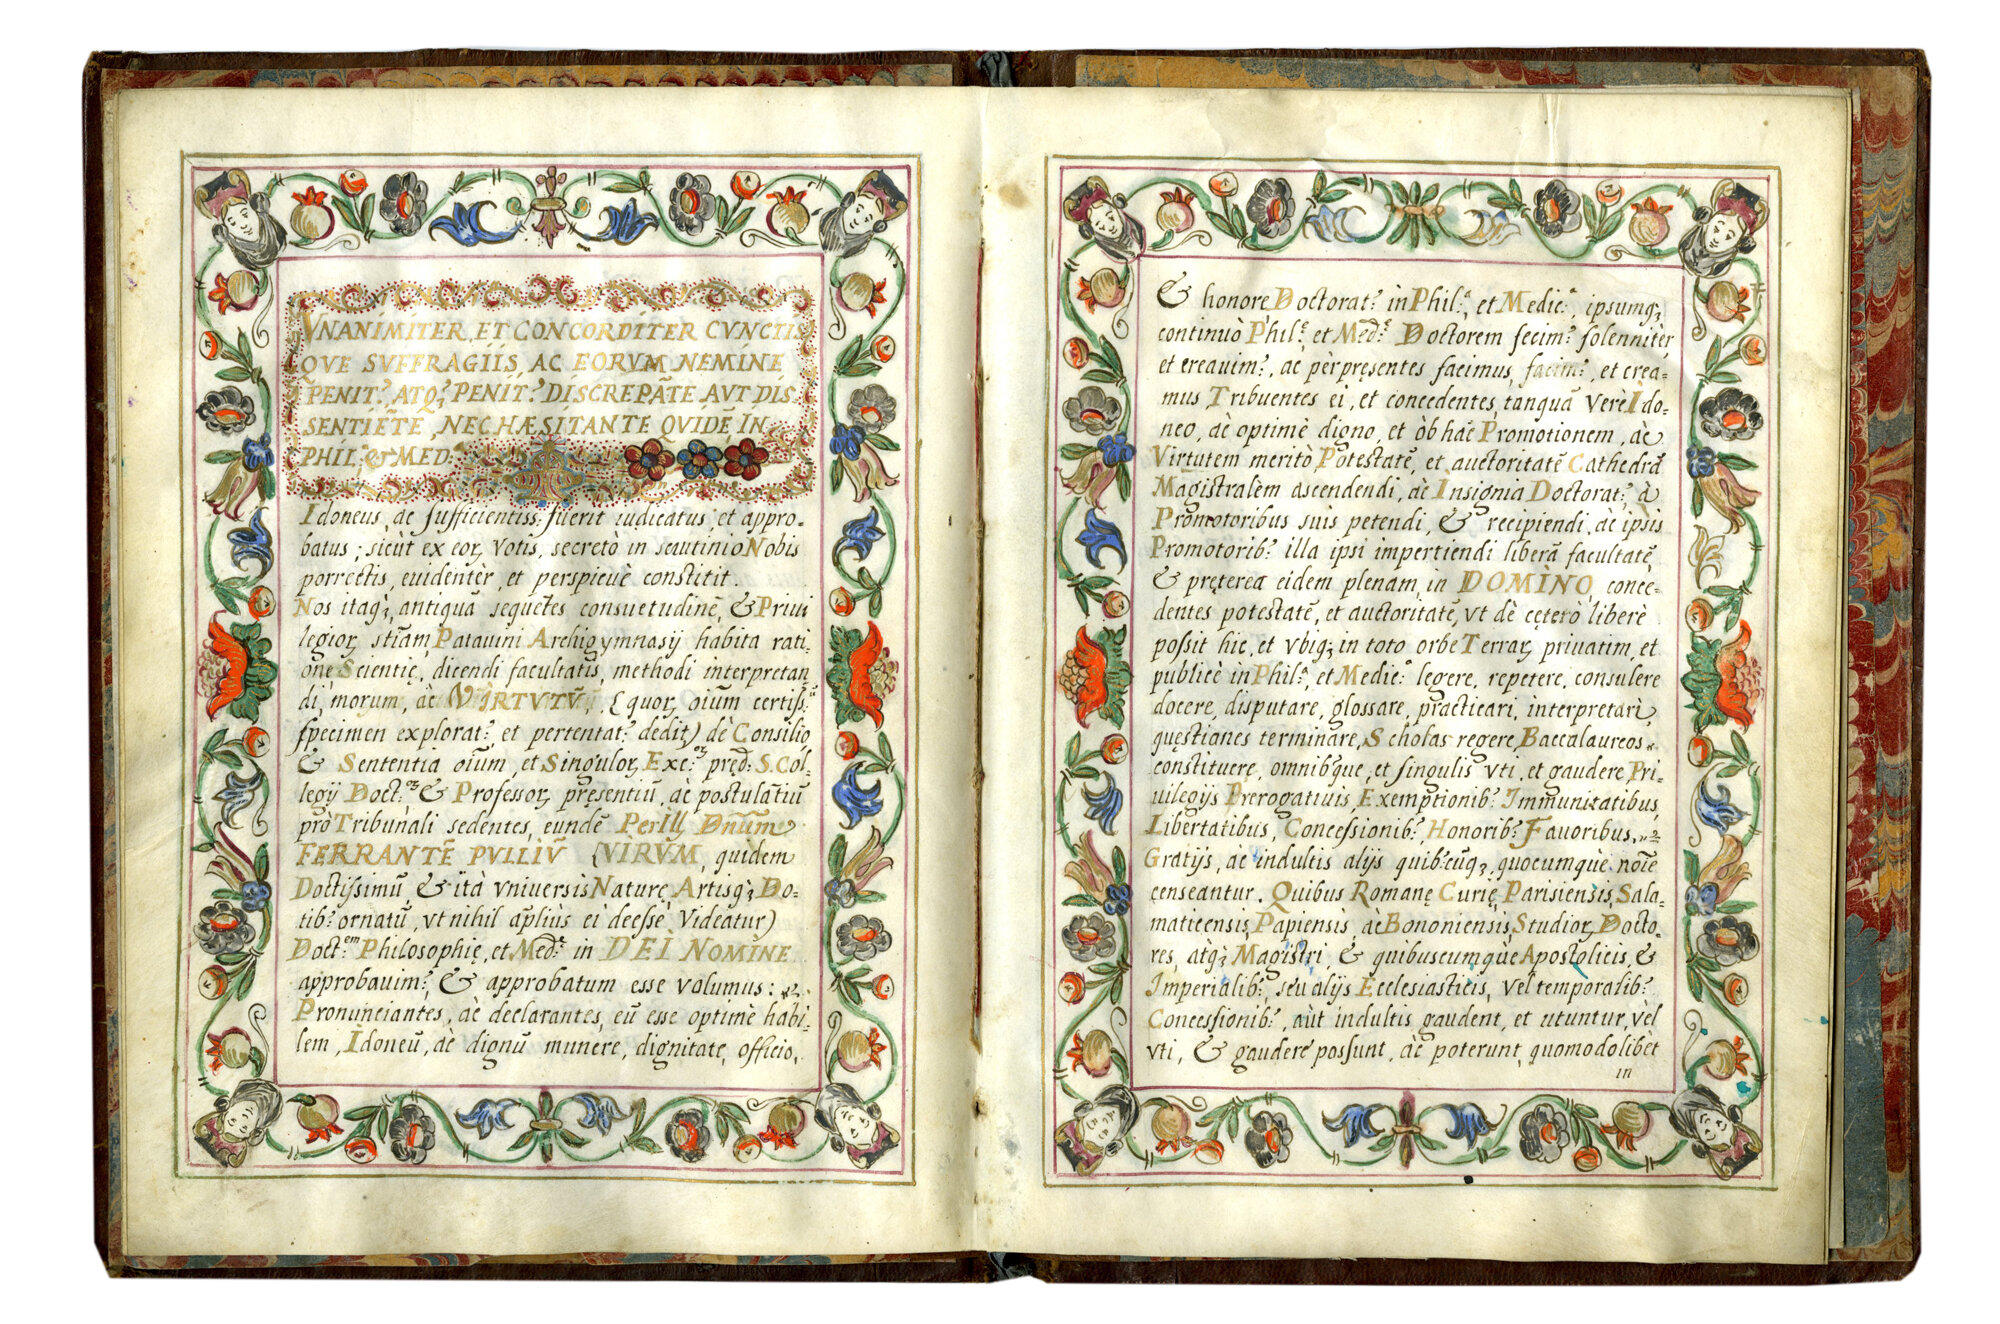 VNANIMITER, ET CONCORDITER CVNCTIS
QVE SVFFRAGIIS, AC EORVM NEMINE
PENIT.ˢ ATQ; PENIT.ˢ DISCREPAÑTE AVT DIS-
SENTIĒTE, NEC HÆSITANTE QVIDĒ IN
PHIL. & MED.
Idoneus, ac sufficientiss: fuerit iudicatus, et appro-
batus; sicut ex eor, Votis, secretò in scutinio Nobis
porrectis, euidentèr, et perspicuè constitit.
Nos itaq;, antiquā sequētes consuetudinē, & Priui
legior, stiam, Patauini Archigymnasij habita rati-
one Scientię, dicendi facultatis, methodi interpretan
di, morum, àc VIRTVTŪ, (quor, oium certiss.ᵃ
specimen explorat.ˢ et pertentat.ˢ dedit) dè Consilio
& Sententia oium, et Singulor, Exc.ᵒʳ pręd: S. Col-
legij Doct.ᵒʳ & Professor, pręsentiū, àc postulātiū
prò Tribunali sedentes, eundē Per Ill. Dnūm
FERRANTĒ PVLLIŪ (VIRVM, quidem
Doctissimū, & ità vniuersis Naturę, Artisq; Do-
tib.ˢ ornatū, vt nihil ap̄liùs ei deesse Videatur)
Doct.ᵉᵐ Philosophię, et Med.ᵉ in DEI NOMINE
approbauim.ˢ, & approbatum esse volumus:
Pronunciantes, àc declarantes, eū esse optimè habi-
lem, Idoneū, àc dignū munere, dignitate, officio,
& honore Doctorat.ˢ in Phil.ᵃ et Medic.ᵃ, ipsumq;
continuò Phil.ᵉ et Med.ᵉ Doctorem fecim.ˢ solennitèr,
et creauim.ˢ, ac pèr pręsentes facimus, facim.ˢ, et crea-
mus, Tribuentes ei, et concedentes, tanquā Vere Ido-
neo, àc optimè digno, et òb hāc Promotionem, àc
Virtutem meritò Potestatē, et auctoritatē Cathedrā
Magistralem ascendendi, àc Insignia Doctorat.ˢ à
Promotoribus suis petendi, & recipiendi, àc ipsis
Promotorib.ˢ illa ipsi impertiendi liberā facultatē,
& pręterea eidem plenam, in DOMINO, conce-
dentes potestatē, et auctoritatē, vt dè cęterò liberè
possit hic, et vbiq; in toto orbe Terrar, priuatim, et
publicè in Phil.ᵃ, et Medic.ᵃ legere, repetere, consulere
docere, disputare, glossare, practicari, interpretari,
quęstiones terminare, Scholas regere, Baccalaureos
constituere, omnibq̀ue, et singulis vti, et gaudere Pri-
uilegijs Prerogatiuis, Exemptionib.ˢ Immunitatibus,
Libertatibus, Concessionib.ˢ Honorib.ˢ Fauoribus,
Gratijs, àc indultis alijs quib.ˢcūq;, quocumquè noīe
censeantur. Quibus Romanę Curię, Parisiensis, Sala-
maticensis, Papiensis, àc Bononiensis, Studior, Docto-
res, atq; Magistri, & quibuscumquè Apostolicis, &
Imperialib.ˢ, seù alijs Ecclesiasticis, Vel temporalib.ˢ
Concessionib.ˢ, aùt indultis gaudent, et utuntur, vèl
vti, & gaudere possunt, àc poterunt, quomodolibet
in